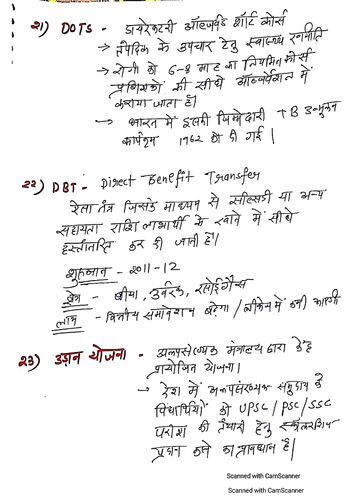 21) DOTS - डायरेक्टली ऑब्जर्वड शॉर्ट कोर्स
→ तपेदिक के उपचार हेतु स्वास्थ्य रणनीति
→ रोगी को 6-8 माह का नियमित कोर्स
प्रशिक्षकों की सीधे ऑब्जर्वेशन में
कराया जाता है।
→ भारत में इसकी जिम्मेदारी TB उन्मूलन
कार्यक्रम 1962 को दी गई।
22) DBT - Direct Benefit Transfer
ऐसा तंत्र जिसके माध्यम से सब्सिडी या अन्य
सहायता राशि लाभार्थी के खाते में सीधे
हस्तांतरित कर दी जाती है।
शुरुआत - 2011-12
क्षेत्र - बीमा, उर्वरक, रसोई गैस
लाभ - वित्तीय समावेशन बढ़ेगा / लीकेज में कमी आएगी
23) उड़ान योजना - अल्पसंख्यक मंत्रालय द्वारा केंद्र
प्रायोजित योजना।
→ देश में अल्पसंख्यक समुदाय के
विद्यार्थियों को UPSC / PSC / SSC
परीक्षा की तैयारी हेतु स्कॉलरशिप
प्रदान करने का प्रावधान है।
Scanned with CamScanner
Scanned with CamScanner